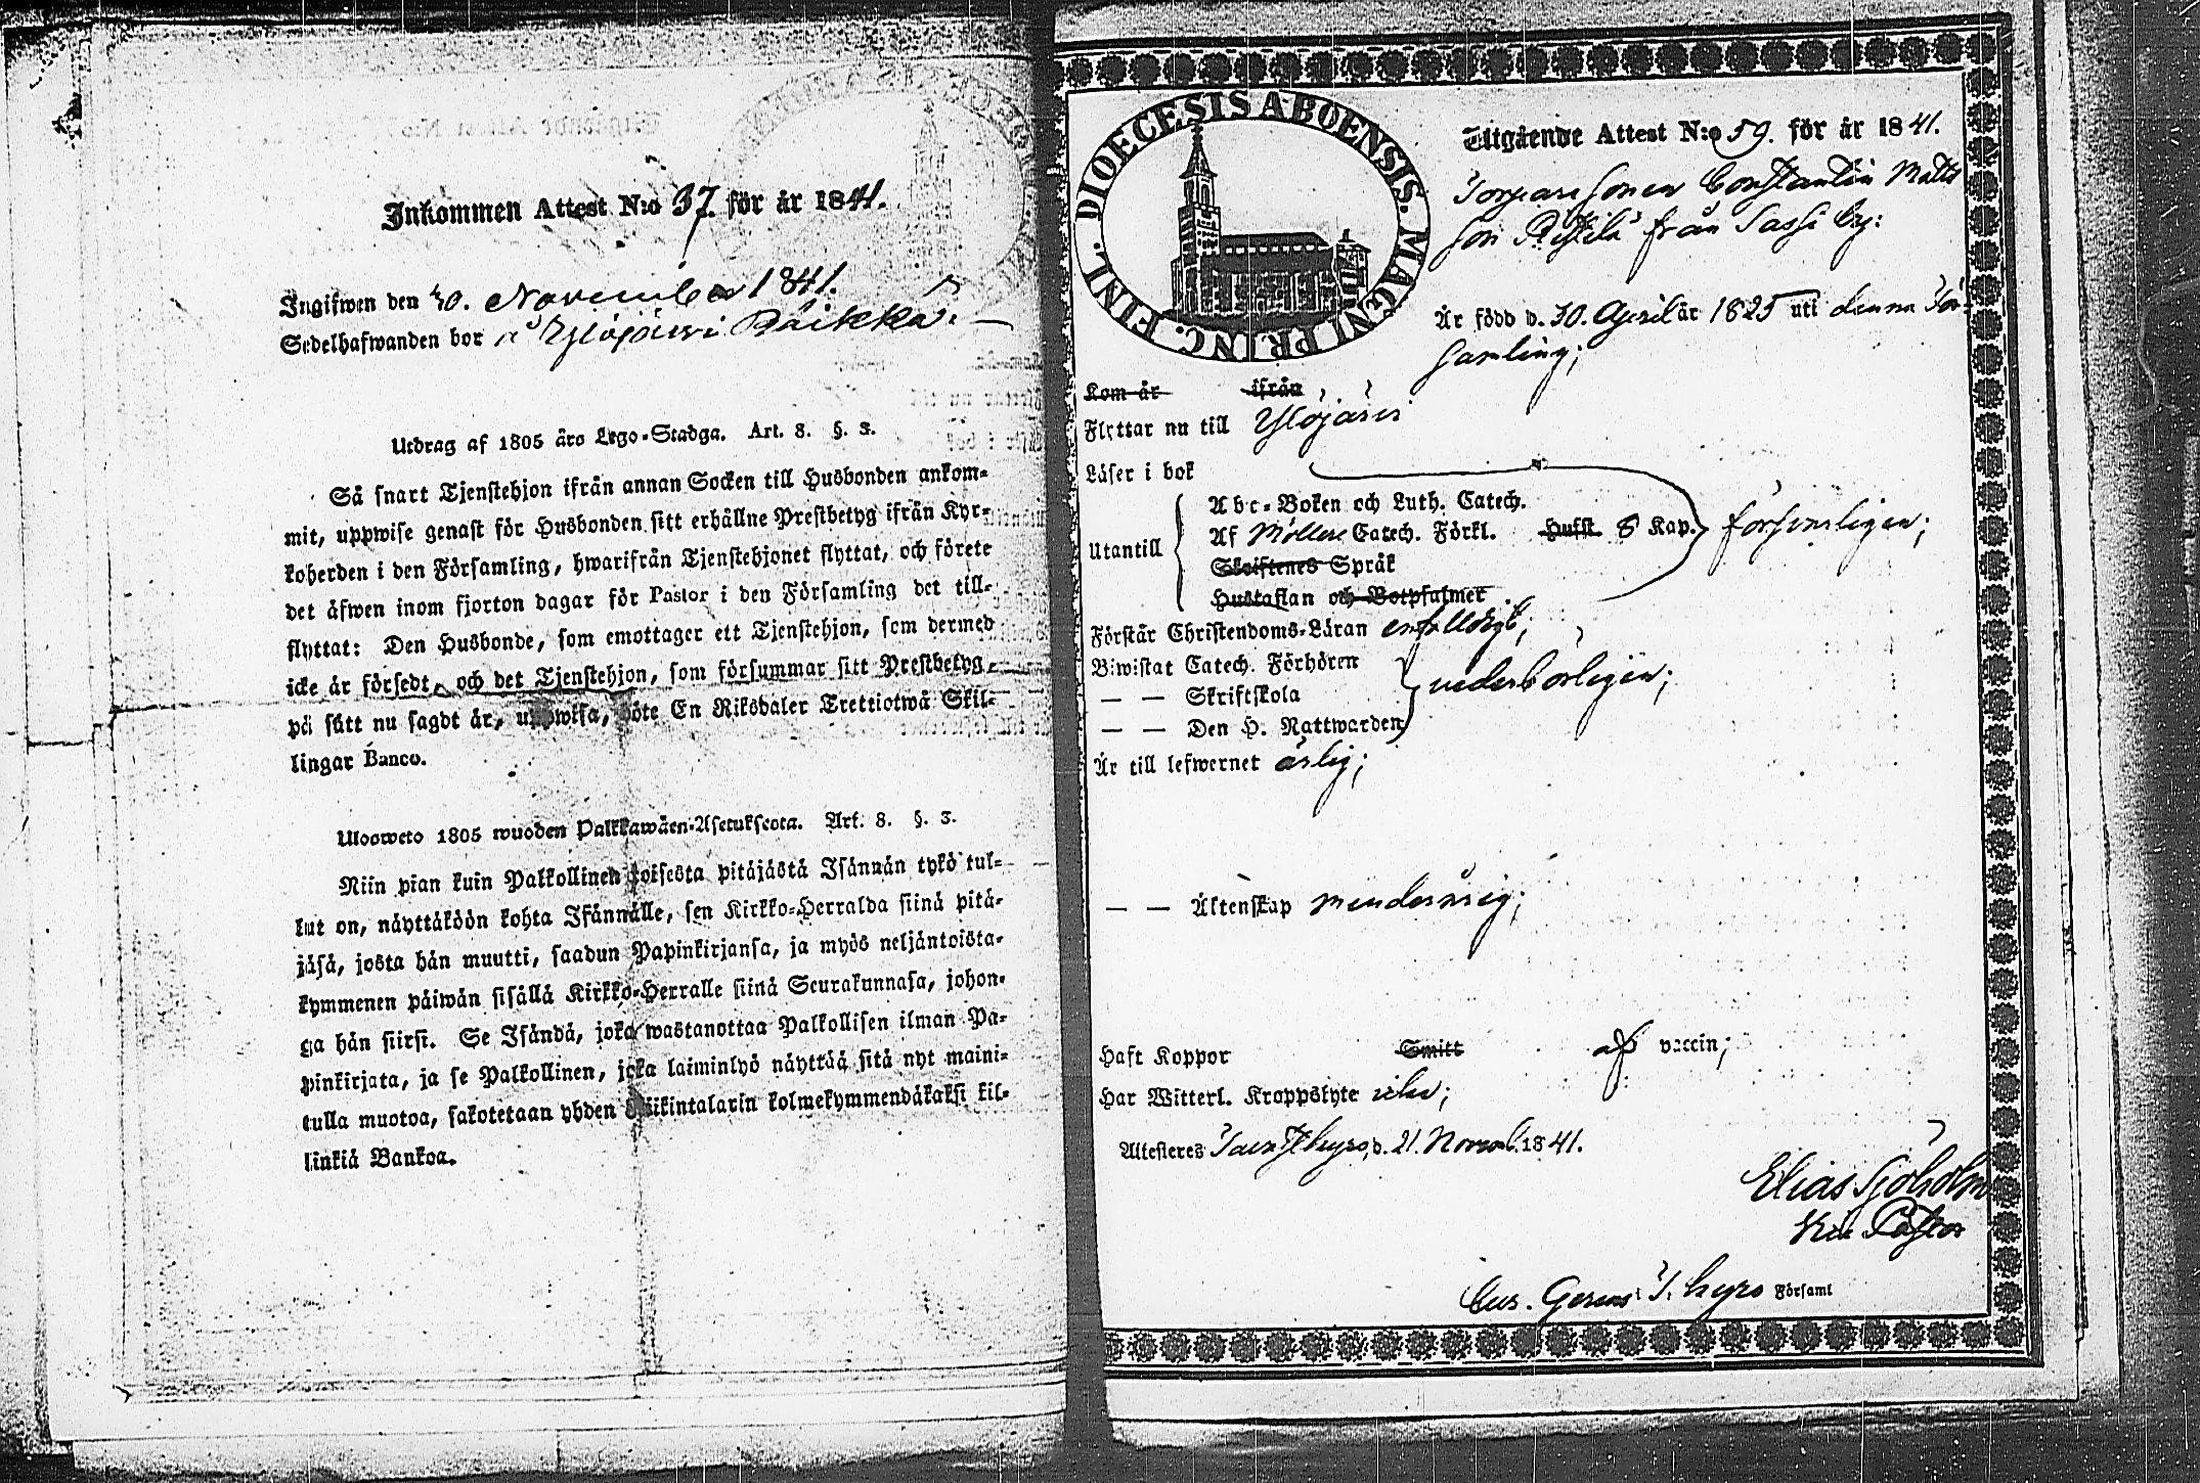 Inkommen Attest N:o 37. för år 1841.
Ingifwen den 30. November 1841.
Sedelhafwanden bor å Ylöjärvi Räikkä.
Utdrag af 1805 års Lego-Stadga. Art. 8. §. 3.
Så snart Tjenstehjon ifrån annan Socken till Husbonden ankom-
mit, uppwise genast för Husbonden sitt erhållne Prestbetyg ifrån Kyr-
koherden i den Församling, hwarifrån Tjenstehjonet flyttat, och förete
det äfwen inom fjorton dagar för Pastor i den Församling det till-
flyttat: Den Husbonde, som emottager ett Tjenstehjon, som dermed
icke är försedt, och det Tjenstehjon, som försummar sitt Prestbetyg,
på sätt nu sagdt är, uppwisa, böte En Riksdaler Trettiotwå Skil-
lingar Banco.
Ulosweto 1805 wuoden Palkkawäen-Asetuksesta. Art. 8. §. 3.
Niin pian kuin Palkollinen toisesta pitäjästä Isännän tykö tul-
lut on, näyttäköön kohta Isännälle, sen Kirkko-Herralda siinä pitä-
jäsä, josta hän muutti, saadun Papinkirjansa, ja myös neljäntoista-
kymmenen päiwän sisällä Kirkko-Herralle siinä Seurakunnasa, johon-
ga hän siirsi. Se Isändä, joka wastanottaa Palkollisen ilman Pa-
pinkirjata, ja se Palkollinen, joka laiminlyö näyttää sitä nyt maini-
tulla muotoa, sakotetaan yhden Riikintalarin kolmekymmendäkaksi kil-
linkiä Bankoa.
FINL. DIOECESIS ABOENSIS. MAGNI PRINC.
Utgående Attest N:o 59. för år 1841.
Torparesonen Constantin Matts
son från Sassi by:
Är född d. 30. April år 1825 uti denna För-
samling;
Kom år ifrån
Flyttar nu till Ylöjärvi
Läser i bok
Abc-Boken och Luth. Catech.
Utantill Af Möllers Catech. Förkl. Hufst. 8 Kap. försvarligen;
Skriftenes Språk
Hustaflan och Botpsalmer
Förstår Christendoms-Läran enfalldigt;
Biwistat Catech. Förhören
— — Skriftskola vederbörligen;
— — Den H. Nattwarden
Är till lefwernet ärlig;
— — Äktenskap minderårig;
Haft Koppor Smitt af vaccin;
Har Witterl. Kroppslyte icke;
Attesteres Tavastkyro, d. 21. Novemb. 1841.
Elias Sjöholm
Vice Pastor
Cur. Gerens i T. kyro Församl